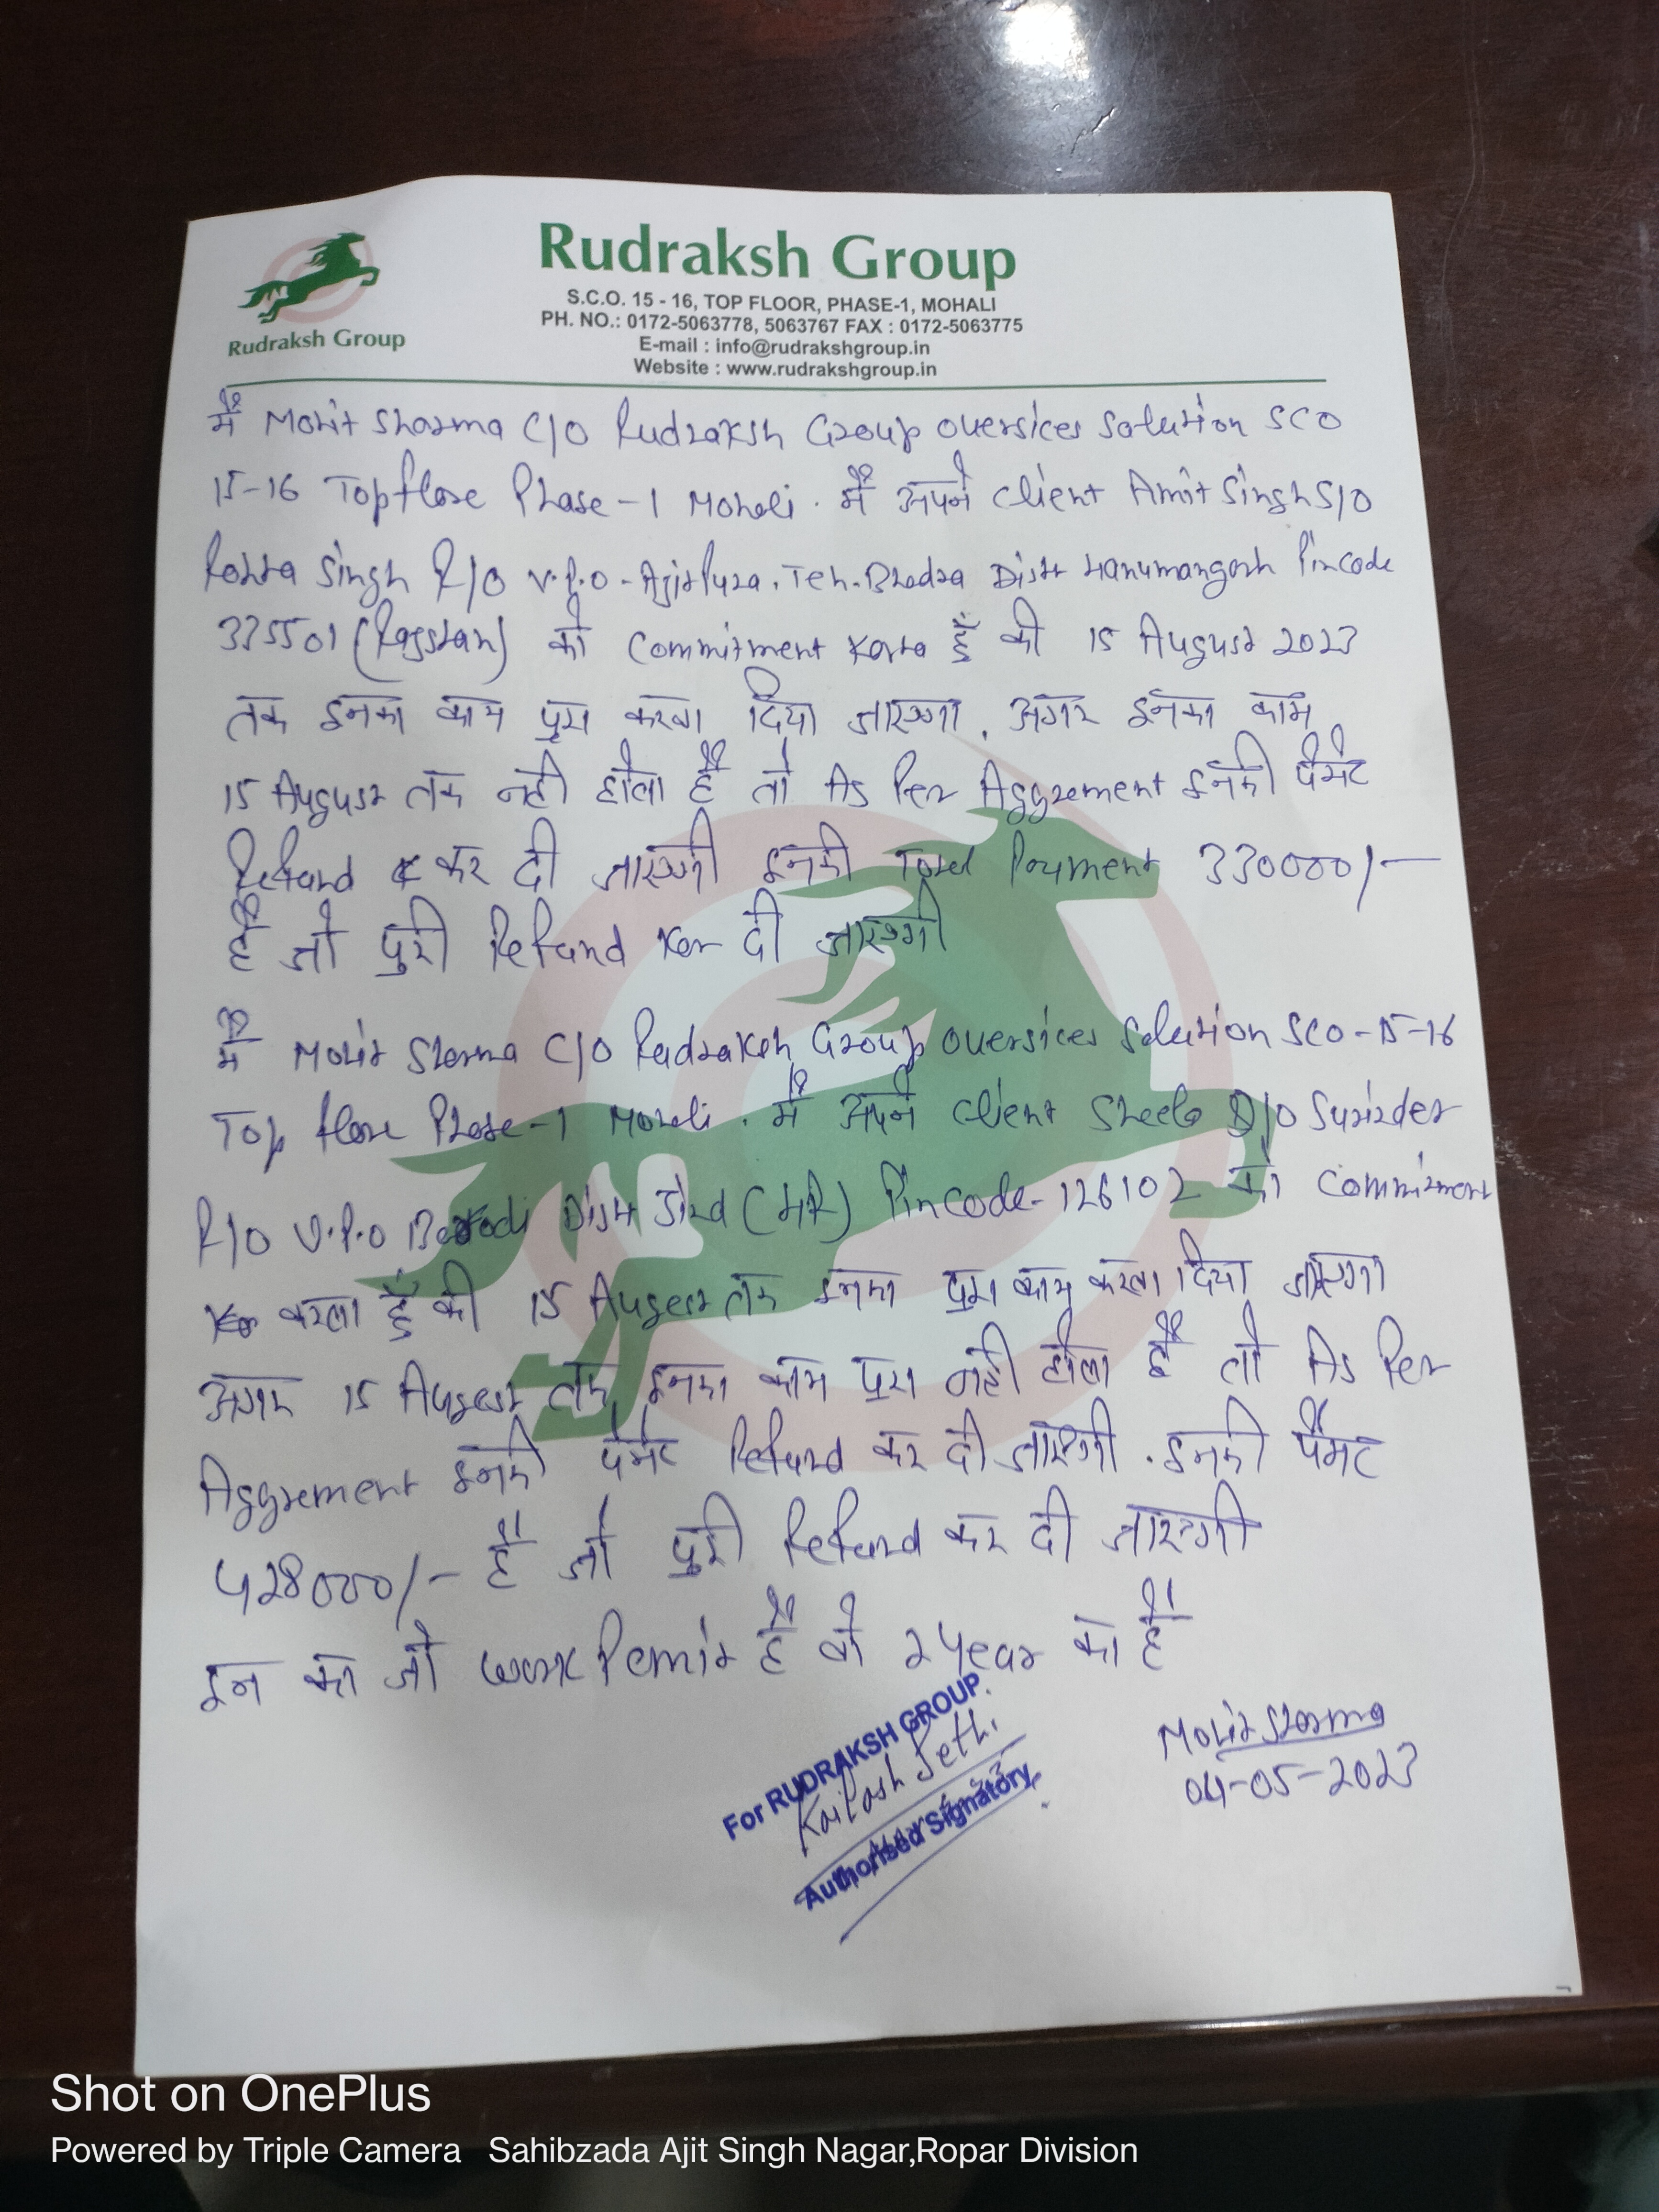 Rudraksh Group
S.C.O. 15 - 16, TOP FLOOR, PHASE-1, MOHALI
PH. NO.: 0172-5063778, 5063767 FAX : 0172-5063775
E-mail : info@rudrakshgroup.in
Website : www.rudrakshgroup.in
Rudraksh Group
मैं Mohit Sharma C/O Rudraksh Group oversices Solution SCO
15-16 Top flore Phase-1 Mohali. मैं अपने Client Amit Singh S/O
Singh R/O V.P.O - Ajitpura, Teh. Bhadra Distt Hanumangarh Pincode
335501 (Rajsthan) को Commitment Karta हूँ की 15 August 2023
तक इनका काम पूरा करवा दिया जाएगा. अगर इनका काम
15 August तक नही होता है तो As Per Aggrement इनकी पैमेंट
Refund कर दी जाएगी इनकी Total Payment 330000/-
है जो पुरी Refund Kar दी जाएगी
मैं Mohit Sharma C/O Rudraksh Group oversices Solution SCO-15-16
Top flore Phase-1 Mohali. मैं अपने Client Sheela D/O Surinder
R/O V.P.O Distt Jind (HR) Pincode-126102 को Commitment
करता हूँ की 15 August तक इनका पूरा काम करवा दिया जाएगा
अगर 15 August तक इनका काम पूरा नही होता है तो As Per
Aggrement इनकी पेमेंट Refund कर दी जाएगी. इनकी पैंमट
428000/- है जो पुरी Refund कर दी जाएगी
इन का जो work Permit है वो 2 year का है
For RUDRAKSH GROUP.
Kailash Sethi
Authorised Signatory
Mohit Sharma
04-05-2023
Shot on OnePlus
Powered by Triple Camera Sahibzada Ajit Singh Nagar,Ropar Division